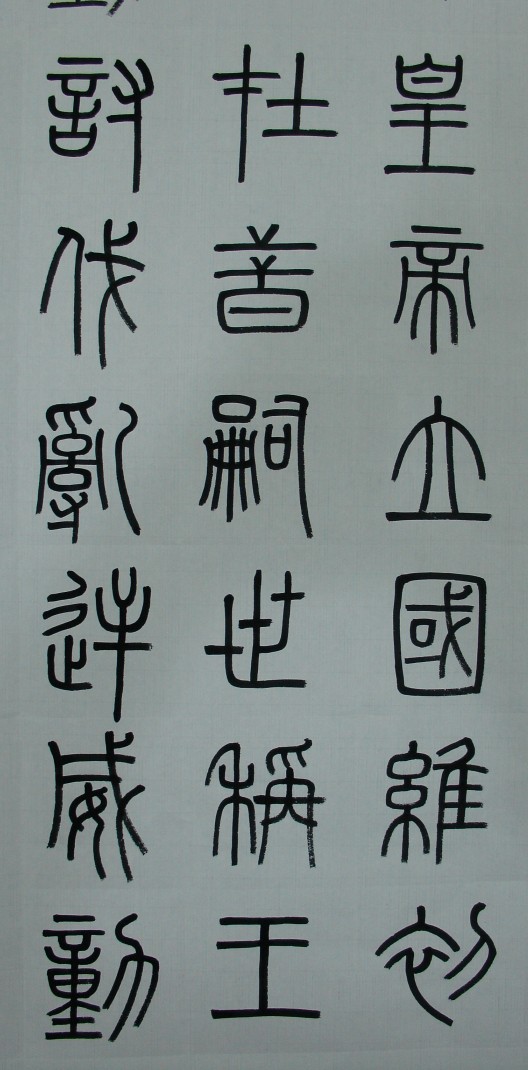 皇帝立國維初
在昔嗣世稱王
討伐亂逆威動